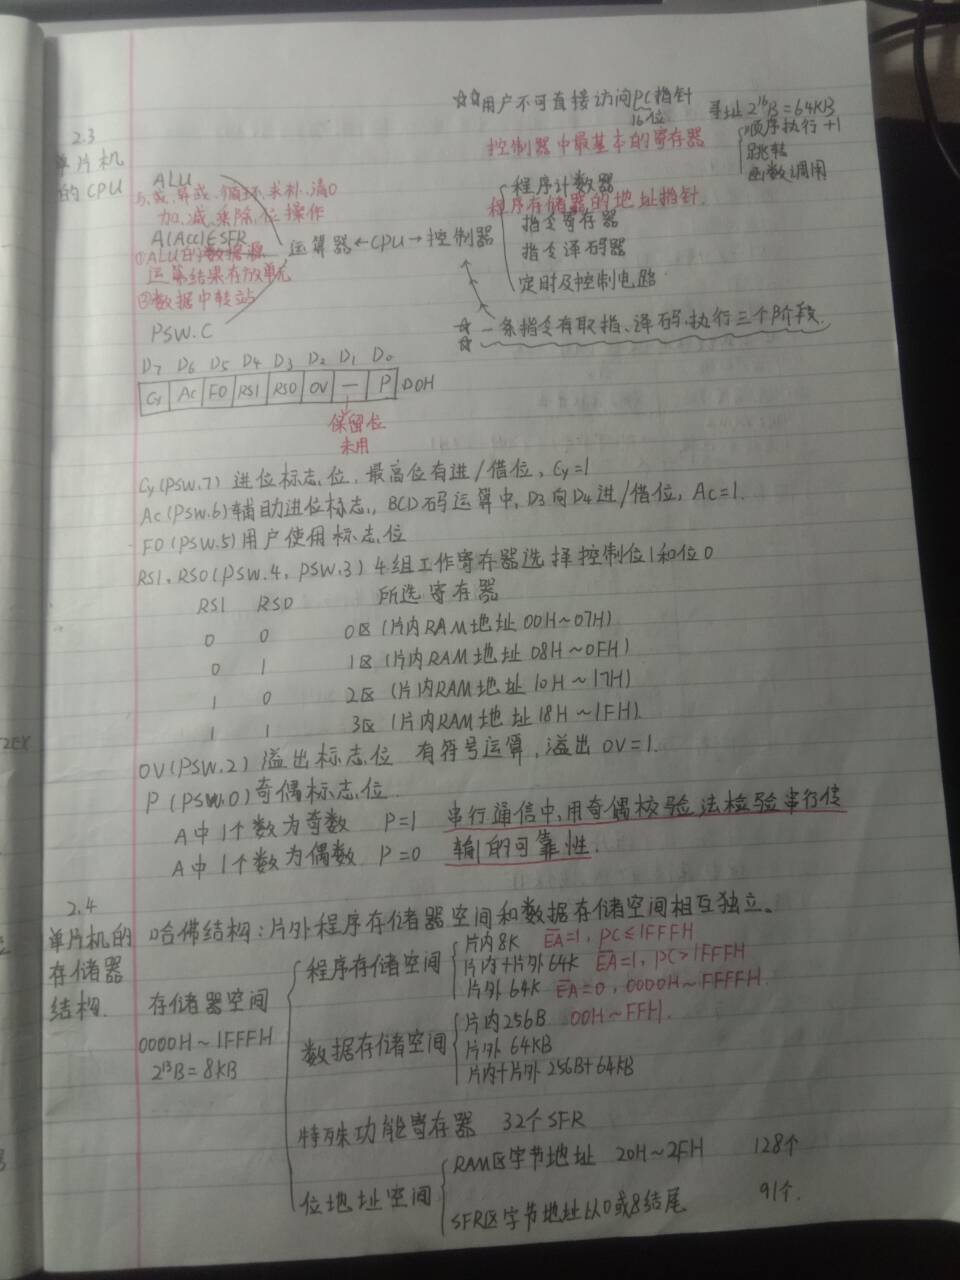 ☆☆用户不可直接访问PC指针
16位
寻址 2¹⁶B=64KB
顺序执行 +1
跳转
函数调用
2.3
单片机
的CPU
控制器中最基本的寄存器
程序计数器
程序存储器的地址指针
指令寄存器
指令译码器
定时及控制电路
ALU
与、或、异或、循环、求补、清0
加、减、乘、除、位操作
A(Acc)∈SFR
①ALU的数据源
运算结果存放单元
②数据中转站
PSW.C
运算器←CPU→控制器
☆☆ 一条指令有取指、译码、执行三个阶段.
D7 D6 D5 D4 D3 D2 D1 D0
Cy Ac F0 RS1 RS0 OV — P D0H
保留位
未用
Cy(PSW.7) 进位标志位. 最高位有进/借位, Cy=1
Ac(PSW.6)辅助进位标志, BCD码运算中, D3向D4进/借位, Ac=1.
F0(PSW.5)用户使用标志位
RS1、RS0(PSW.4, PSW.3) 4组工作寄存器选择控制位1和位0
RS1 RS0 所选寄存器
0 0 0区(片内RAM地址 00H~07H)
0 1 1区(片内RAM地址 08H~0FH)
1 0 2区(片内RAM地址 10H~17H)
1 1 3区(片内RAM地址 18H~1FH).
OV(PSW.2) 溢出标志位 有符号运算, 溢出 OV=1.
P (PSW.0)奇偶标志位
A中1个数为奇数 P=1 串行通信中,用奇偶校验法检验串行传
A中1个数为偶数 P=0 输的可靠性.
2.4
单片机的
存储器
结构.
哈佛结构:片外程序存储器空间和数据存储空间相互独立.
存储器空间
0000H~1FFFH
2¹³B=8KB
程序存储空间
片内8K EA=1, PC≤1FFFH
片内+片外64K EA=1, PC>1FFFH
片外64K EA=0, 0000H~FFFFH
数据存储空间
片内256B 00H~FFH
片外 64KB
片内+片外256B+64KB
特殊功能寄存器 32个SFR
位地址空间
RAM区字节地址 20H~2FH 128个
SFR区字节地址以0或8结尾 91个.